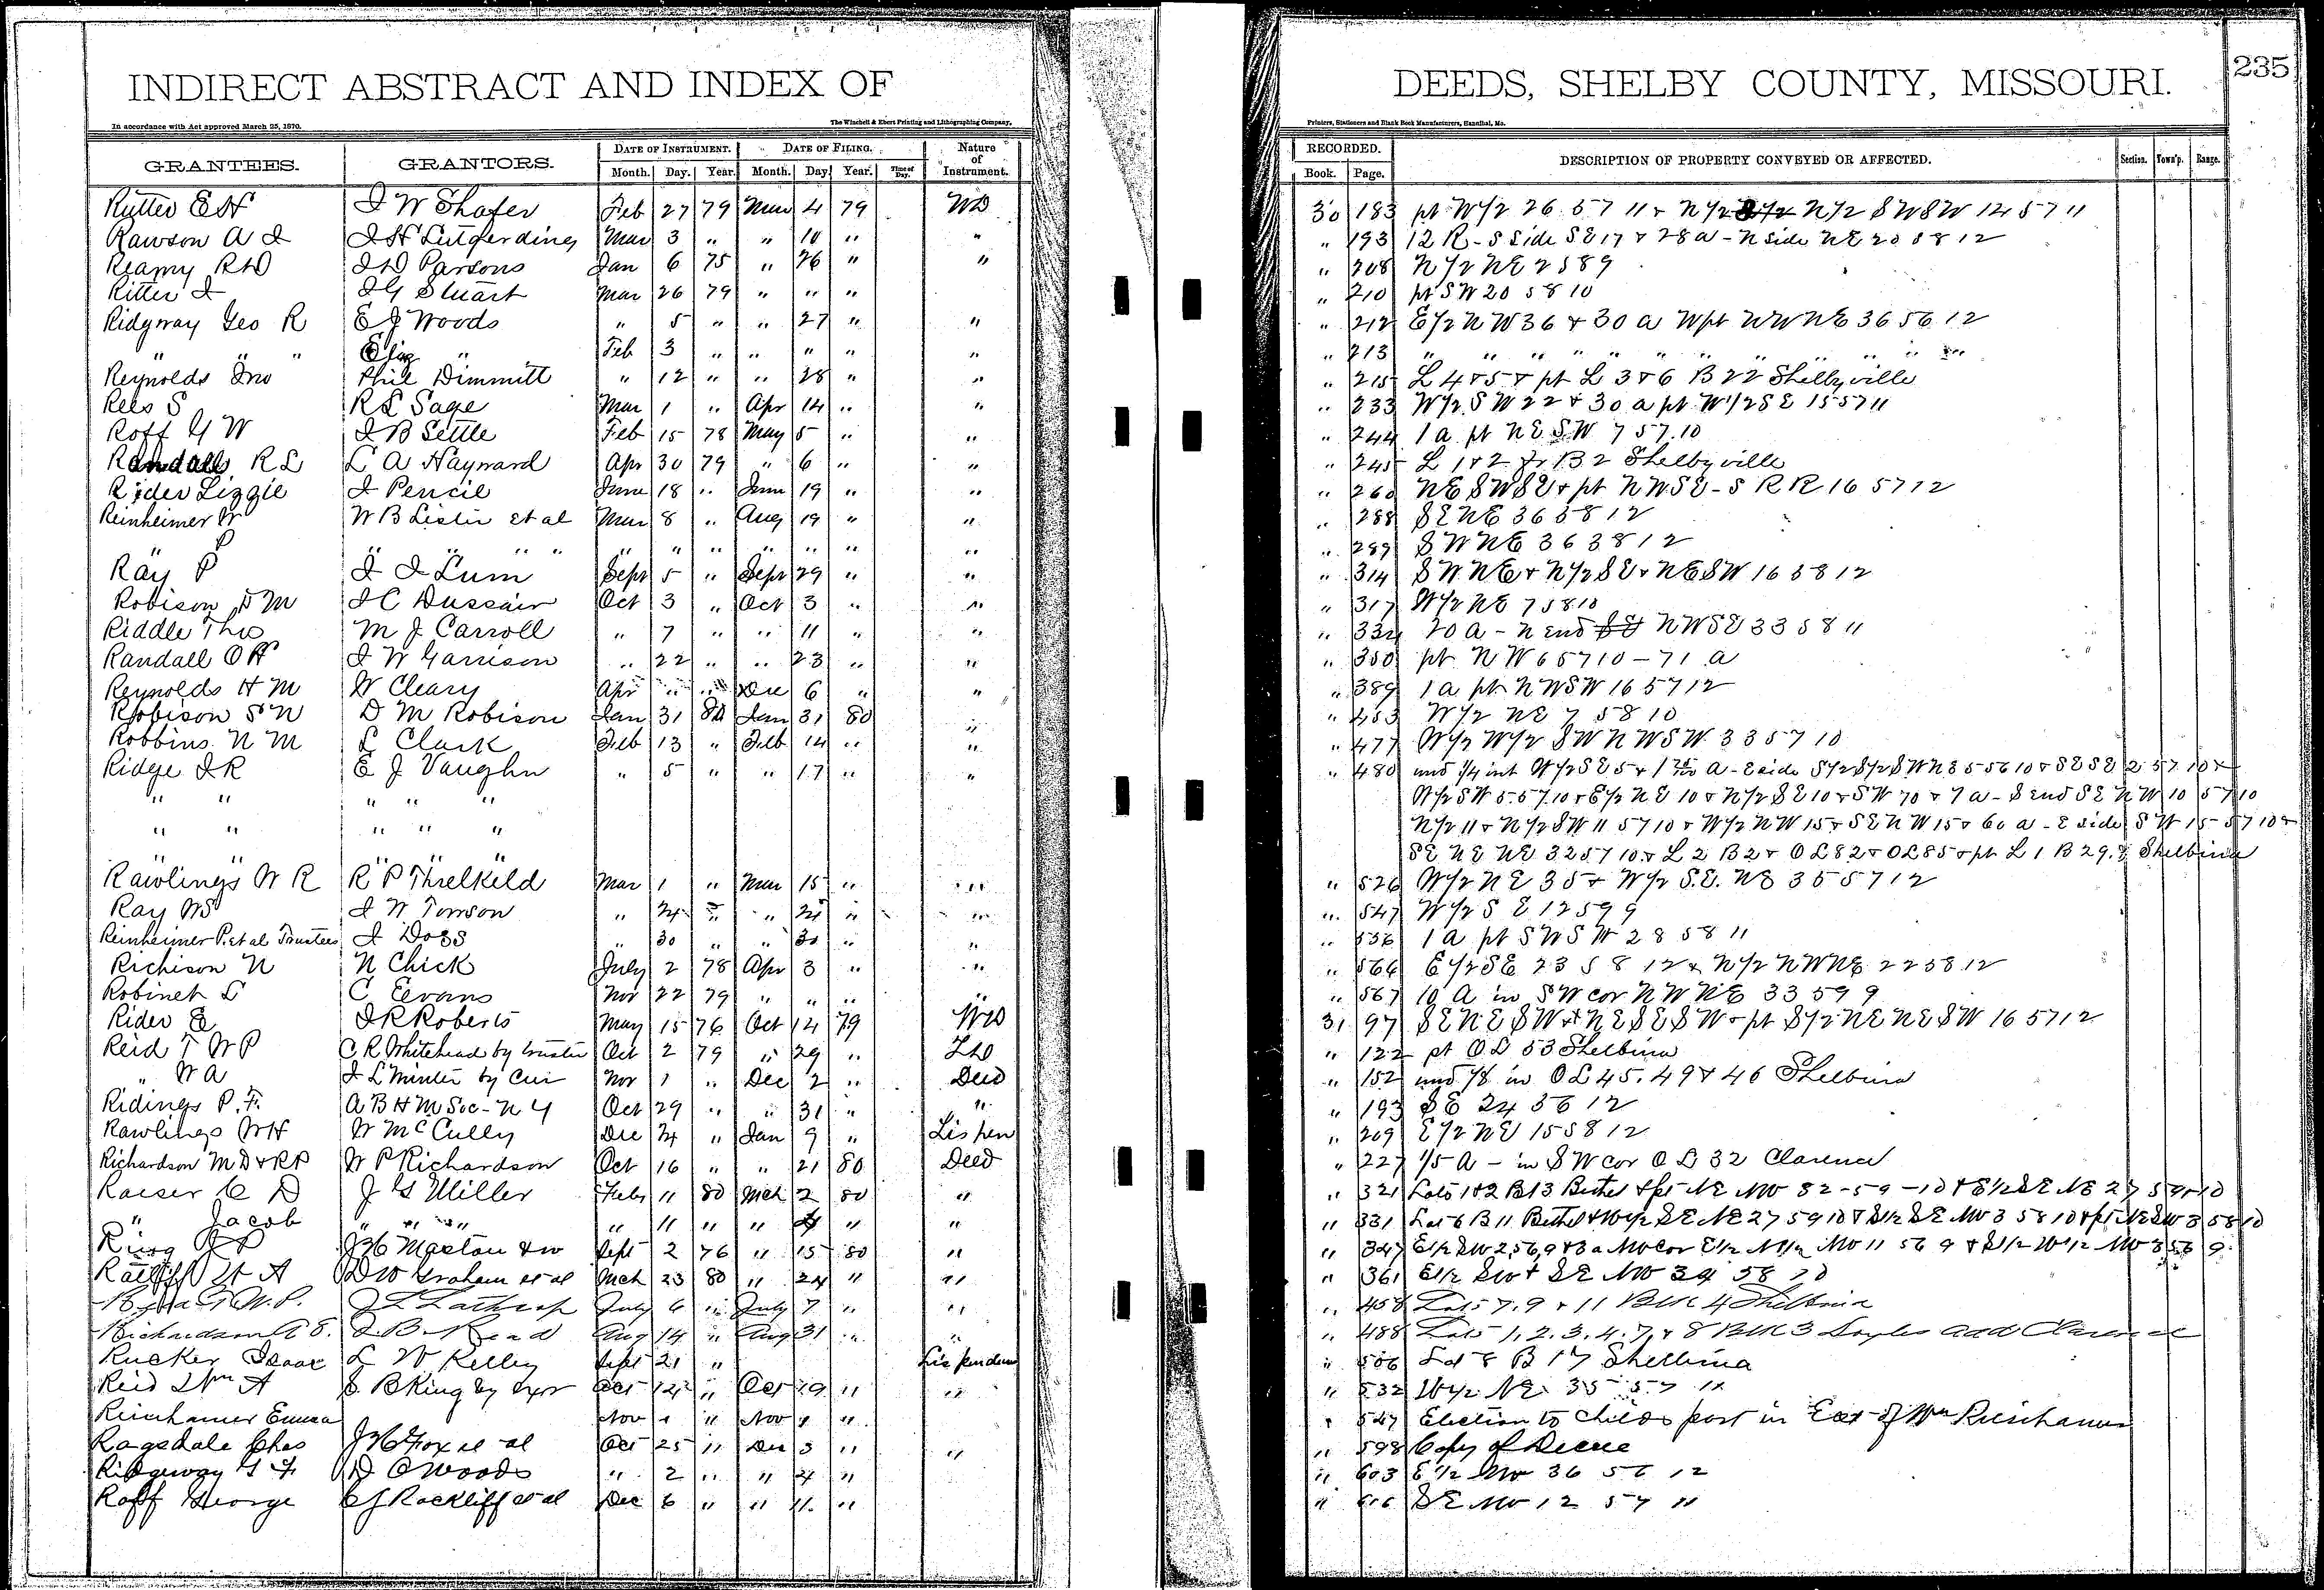 235
INDIRECT ABSTRACT AND INDEX OF DEEDS, SHELBY COUNTY, MISSOURI.
In accordance with Act approved March 25, 1870. The Winchell & Ebert Printing and Lithographing Company, Printers, Stationers and Blank Book Manufacturers, Hannibal, Mo.
GRANTEES. GRANTORS. DATE OF INSTRUMENT. DATE OF FILING. Nature of Instrument. RECORDED. DESCRIPTION OF PROPERTY CONVEYED OR AFFECTED. Section. Town'p. Range.
Month. Day. Year. Month. Day. Year. Time of Day. Book. Page.
Rutter E N I W Shafer Feb 27 79 Mar 4 79 WD 30 183 pt W 1/2 26 57 11 & N 1/2 N 1/2 S W S W 14 57 11
Rawson A I I H Lutgerding Mar 3 " " 10 " " " 193 12 R - S Side S E 17 & 28 a - N side N E 20 58 12
Reamy R D I D Parsons Jan 6 75 " 26 " " " 208 N 1/2 N E 2 58 9
Ritter I I G Stuart Mar 26 79 " " " " 210 pt S W 20 58 10
Ridgway Geo R E J Woods " 5 " " 27 " " " 212 E 1/2 N W 36 & 30 a W pt N W N E 36 56 12
" " " Eliz " Feb 3 " " " " " " 213 " " " " " " " " " "
Reynolds Jno Phil Dimmitt " 12 " " 28 " " " 215 L 4 & 5 & pt L 3 & 6 B 22 Shelbyville
Rees S R L Sage Mar 1 " Apr 14 " " " 233 W 1/2 S W 22 & 30 a pt W 1/2 S E 15 57 11
Roff G W I B Settle Feb 15 78 May 5 " " " 244 1 a pt N E S W 7 57 10
Randall R L L A Hayward Apr 30 79 " 6 " " " 245 L 1 & 2 B 2 Shelbyville
Rider Lizzie I Pencil June 18 " June 19 " " " 260 N E S W S E & pt N W S E - S R R 16 57 12
Reinheimer W W B Lister et al Mar 8 " Aug 19 " " " 288 S E N E 36 58 12
" P " " " " " " " " " " " " 289 S W N E 36 58 12
Ray P I I Lum Sept 5 " Sept 29 " " " 314 S W N E & N 1/2 S E & N E S W 16 58 12
Robison D M I C Dussair Oct 3 " Oct 3 " " " 317 W 1/2 N E 7 58 10
Riddle Thos M J Carroll " 7 " " 11 " " " 334 20 a - N end N W S E 33 58 11
Randall O H I W Garrison " 22 " " 23 " " " 350 pt N W 6 57 10 - 71 a
Reynolds H M W Cleary Apr " " Dec 6 " " " 389 1 a pt N W S W 16 57 12
Robison S N D M Robison Jan 31 80 Jan 31 80 " " 453 W 1/2 N E 7 58 10
Robbins N M L Clark Feb 13 " Feb 14 " " " 477 W 1/2 W 1/2 S W N W S W 33 57 10
Ridge I R E J Vaughn " 5 " " 17 " " " 480 und 1/4 int W 1/2 S E 5 & 1 a - E side S 1/2 S 1/2 S W N E 5 56 10 & S E S E 2 57 10 &
" " " " " W 1/2 S W 5 57 10 & E 1/2 N E 10 & N 1/2 S E 10 & S W 70 & 7 a - S end S E N W 10 57 10
" " " " " N 1/2 11 & N 1/2 S W 11 57 10 & W 1/2 N W 15 & S E N W 15 & 60 a - E side S W 15 57 10 &
" " " " " S E N E N E 32 57 10 & L 2 B 2 & O L 82 & O L 85 & pt L 1 B 29 Shelbina
Rawlings W R R P Threlkeld Mar 1 " Mar 15 " " " 526 W 1/2 N E 35 & W 1/2 S.E. N E 35 57 12
Ray W S I W Towson " 24 " " 24 " " " 547 W 1/2 S E 12 59 9
Reinheimer P. et al Trustees I Doss " 30 " " 30 " " " 556 1 a pt S W S W 28 58 11
Richison N N Chick July 2 78 Apr 3 " " " 566 E 1/2 S E 23 58 12 & N 1/2 N W N E 22 58 12
Robinet L C Eevans Nov 22 79 " " " " " 567 10 A in S W cor N W N E 33 59 9
Rider E I R Roberts May 15 76 Oct 14 79 WD 31 97 S E N E S W & N E S E S W & pt S 1/2 N E N E S W 16 57 12
Reid T W P C R Whitehead by trustee Oct 2 79 " 29 " TD " 122 pt O L 53 Shelbina
" W A I L Minter by Cur Nov 1 " Dec 2 " Deed " 152 und 1/8 in O L 45. 49 & 46 Shelbina
Ridings P. F. A B H M Soc - N Y Oct 29 " " 31 " " " 193 S E 24 56 12
Rawlings W H W McCully Dec 24 " Jan 9 " Lis pen " 209 E 1/2 N E 15 58 12
Richardson M D & R P W P Richardson Oct 16 " " 21 80 Deed " 227 1/5 A - in S W cor O L 32 Clarence
Raeser C D J G Miller Feby 11 80 Mch 2 80 " " 321 Lots 1 & 2 B 13 Bethel & pt N E N W 32-59-10 & E 1/2 S E N E 27 59 10
" Jacob " " " " 11 " " 4 " " " 331 Lot 6 B 11 Bethel & W 1/2 S E N E 27 59 10 & S 1/2 S E N W 3 58 10 & pt N E S W 3 58 10
Ring J P J H Maston & w Sept 2 76 " 15 80 " " 347 E 1/2 S W 2, 56, 9 & 3 a N W cor E 1/2 N 1/2 N W 11 56 9 & S 1/2 W 1/2 N W 3 56 9
Ratliff H A D W Graham et al Mch 23 80 " 24 " " " 361 E 1/2 S W & S E N W 34 58 10
J L Lathrop July 6 " July 7 " " " 458 Lots 7, 9 & 11 Blk 4 Shelbina
Richardson A S. I. B. Read Aug 14 " Aug 31 " " " 488 Lots 1, 2, 3, 4, 7, & 8 Blk 3 Add Clarence
Rucker Isaac L W Kelley Sept 21 " Lis pendens " 506 Lot 8 B 17 Shelbina
Reid Wm A S. B King by Exr Oct 14 " Oct 19 " " " 532 W 1/2 N E 35 57 11
Reinhamer Emma Nov 1 " Nov 1 " " 547 Election to Childs part in Est of Wm Reinhamer
Ragsdale Chas J H Fox et al Oct 25 " Dec 3 " " " 598 Copy of Decree
Ridgeway G F D C Woods " 2 " " 4 " " 603 E 1/2 N W 36 56 12
Roff George C J Rockliff et al Dec 6 " " 11 " " 616 S E N W 12 57 11